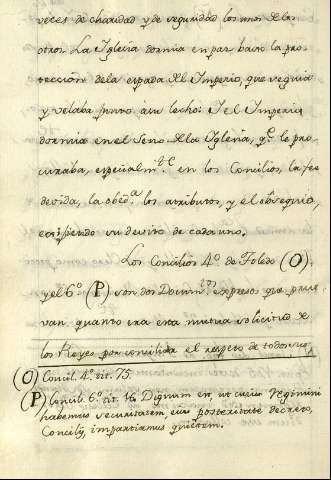 veces de charidad y de seguridad los unos de los
otros. La Iglesia dormia en paz baxo la pro-
teccion de la espada del Imperio, que seguia
y velaba junto à su lecho: Y el Imperio
dormia en el seno de la Iglesia, q.e le pro-
curaba, especialm.te en los Concilios, la fee
devida, la obed.a los atributos, y el obsequio,
exigiendo su devito de cada uno.
Los Concilios 4.º de Toledo (O)
y el 6.º (P) son dos Docum.tos expresos que prue-
van quanto era esta mutua solicitud de
los Reyes por conciliar el respeto de todos
(O) Concil. 4.º tit. 75
(P) Concil. 6.º tit. 16 Dignum est, ut cuius regimine
habemus securitatem, eius posteritate decreto,
Concilij impartiamus quietem.